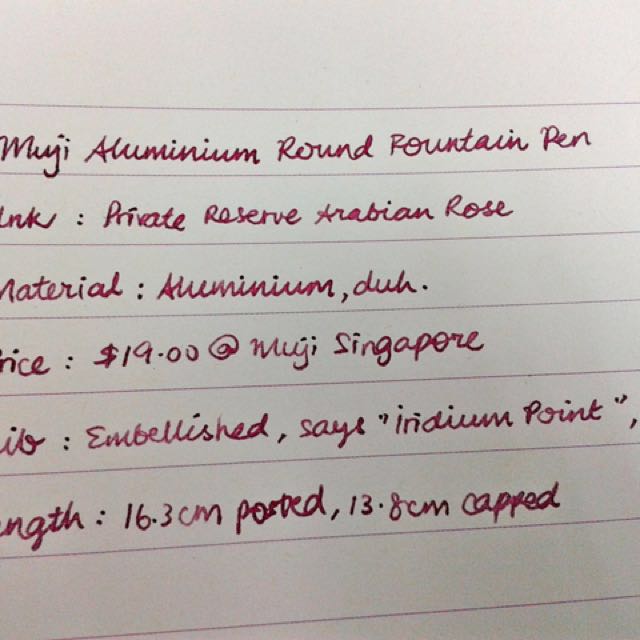 Muji Aluminium Round Fountain Pen
Ink : Private Reserve Arabian Rose
Material : Aluminium, duh.
rice : $19.00 @ Muji Singapore
ib : Embellished, says "iridium Point",
ength : 16.3cm posted, 13.8cm capped